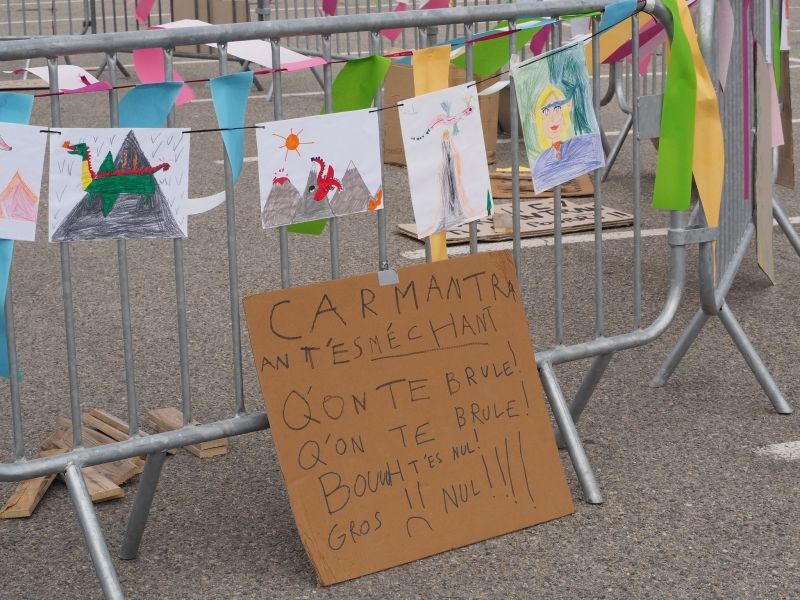 CARMANTRA
AN T'ES MÉCHANT
Q'ON TE BRULE!
Q'ON TE BRULE!
BOUUH T'ES NUL!
GROS !! NUL!!!!